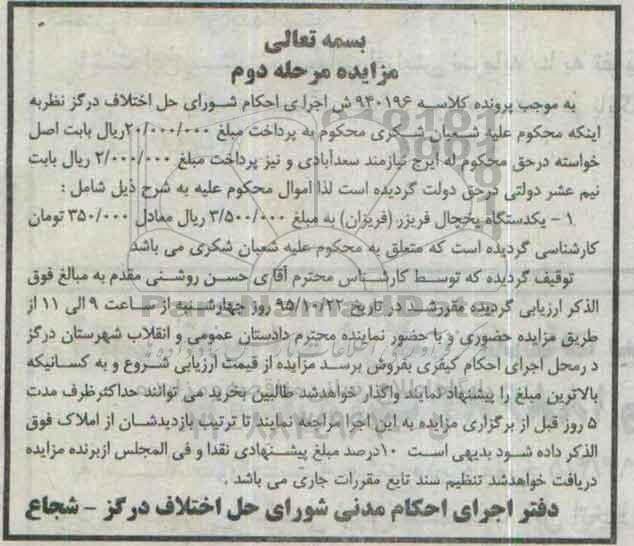 بسمه تعالی
مزایده مرحله دوم
به موجب پرونده کلاسه ۹۴۰۱۹۶ ش اجرای احکام شورای حل اختلاف درگز نظربه
اینکه محکوم علیه شعبان شکری محکوم به پرداخت مبلغ ۲۰/۰۰۰/۰۰۰ریال بابت اصل
خواسته درحق محکوم له ایرج نیازمند سعدآبادی و نیز پرداخت مبلغ ۲/۰۰۰/۰۰۰ ریال بابت
نیم عشر دولتی درحق دولت گردیده است لذا اموال محکوم علیه به شرح ذیل شامل :
۱ - یکدستگاه یخچال فریزر (فریزان) به مبلغ ۳/۵۰۰/۰۰۰ ریال معادل ۳۵۰/۰۰۰ تومان
کارشناسی گردیده است که متعلق به محکوم علیه شعبان شکری می باشد
توقیف گردیده که توسط کارشناس محترم آقای حسن روشنی مقدم به مبالغ فوق
الذکر ارزیابی گردیده مقررشد در تاریخ ۹۵/۱۰/۲۲ روز چهارشنبه از ساعت ۹ الی ۱۱ از
طریق مزایده حضوری و با حضور نماینده محترم دادستان عمومی و انقلاب شهرستان درگز
د رمحل اجرای احکام کیفری بفروش برسد مزایده از قیمت ارزیابی شروع و به کسانیکه
بالاترین مبلغ را پیشنهاد نمایند واگذار خواهدشد طالبین بخرید می توانند حداکثرظرف مدت
۵ روز قبل از برگزاری مزایده به این اجرا مراجعه نمایند تا ترتیب بازدیدشان از املاک فوق
الذکر داده شود بدیهی است ۱۰درصد مبلغ پیشنهادی نقدا و فی المجلس ازبرنده مزایده
دریافت خواهدشد تنظیم سند تابع مقررات جاری می باشد .
دفتر اجرای احکام مدنی شورای حل اختلاف درگز - شجاع